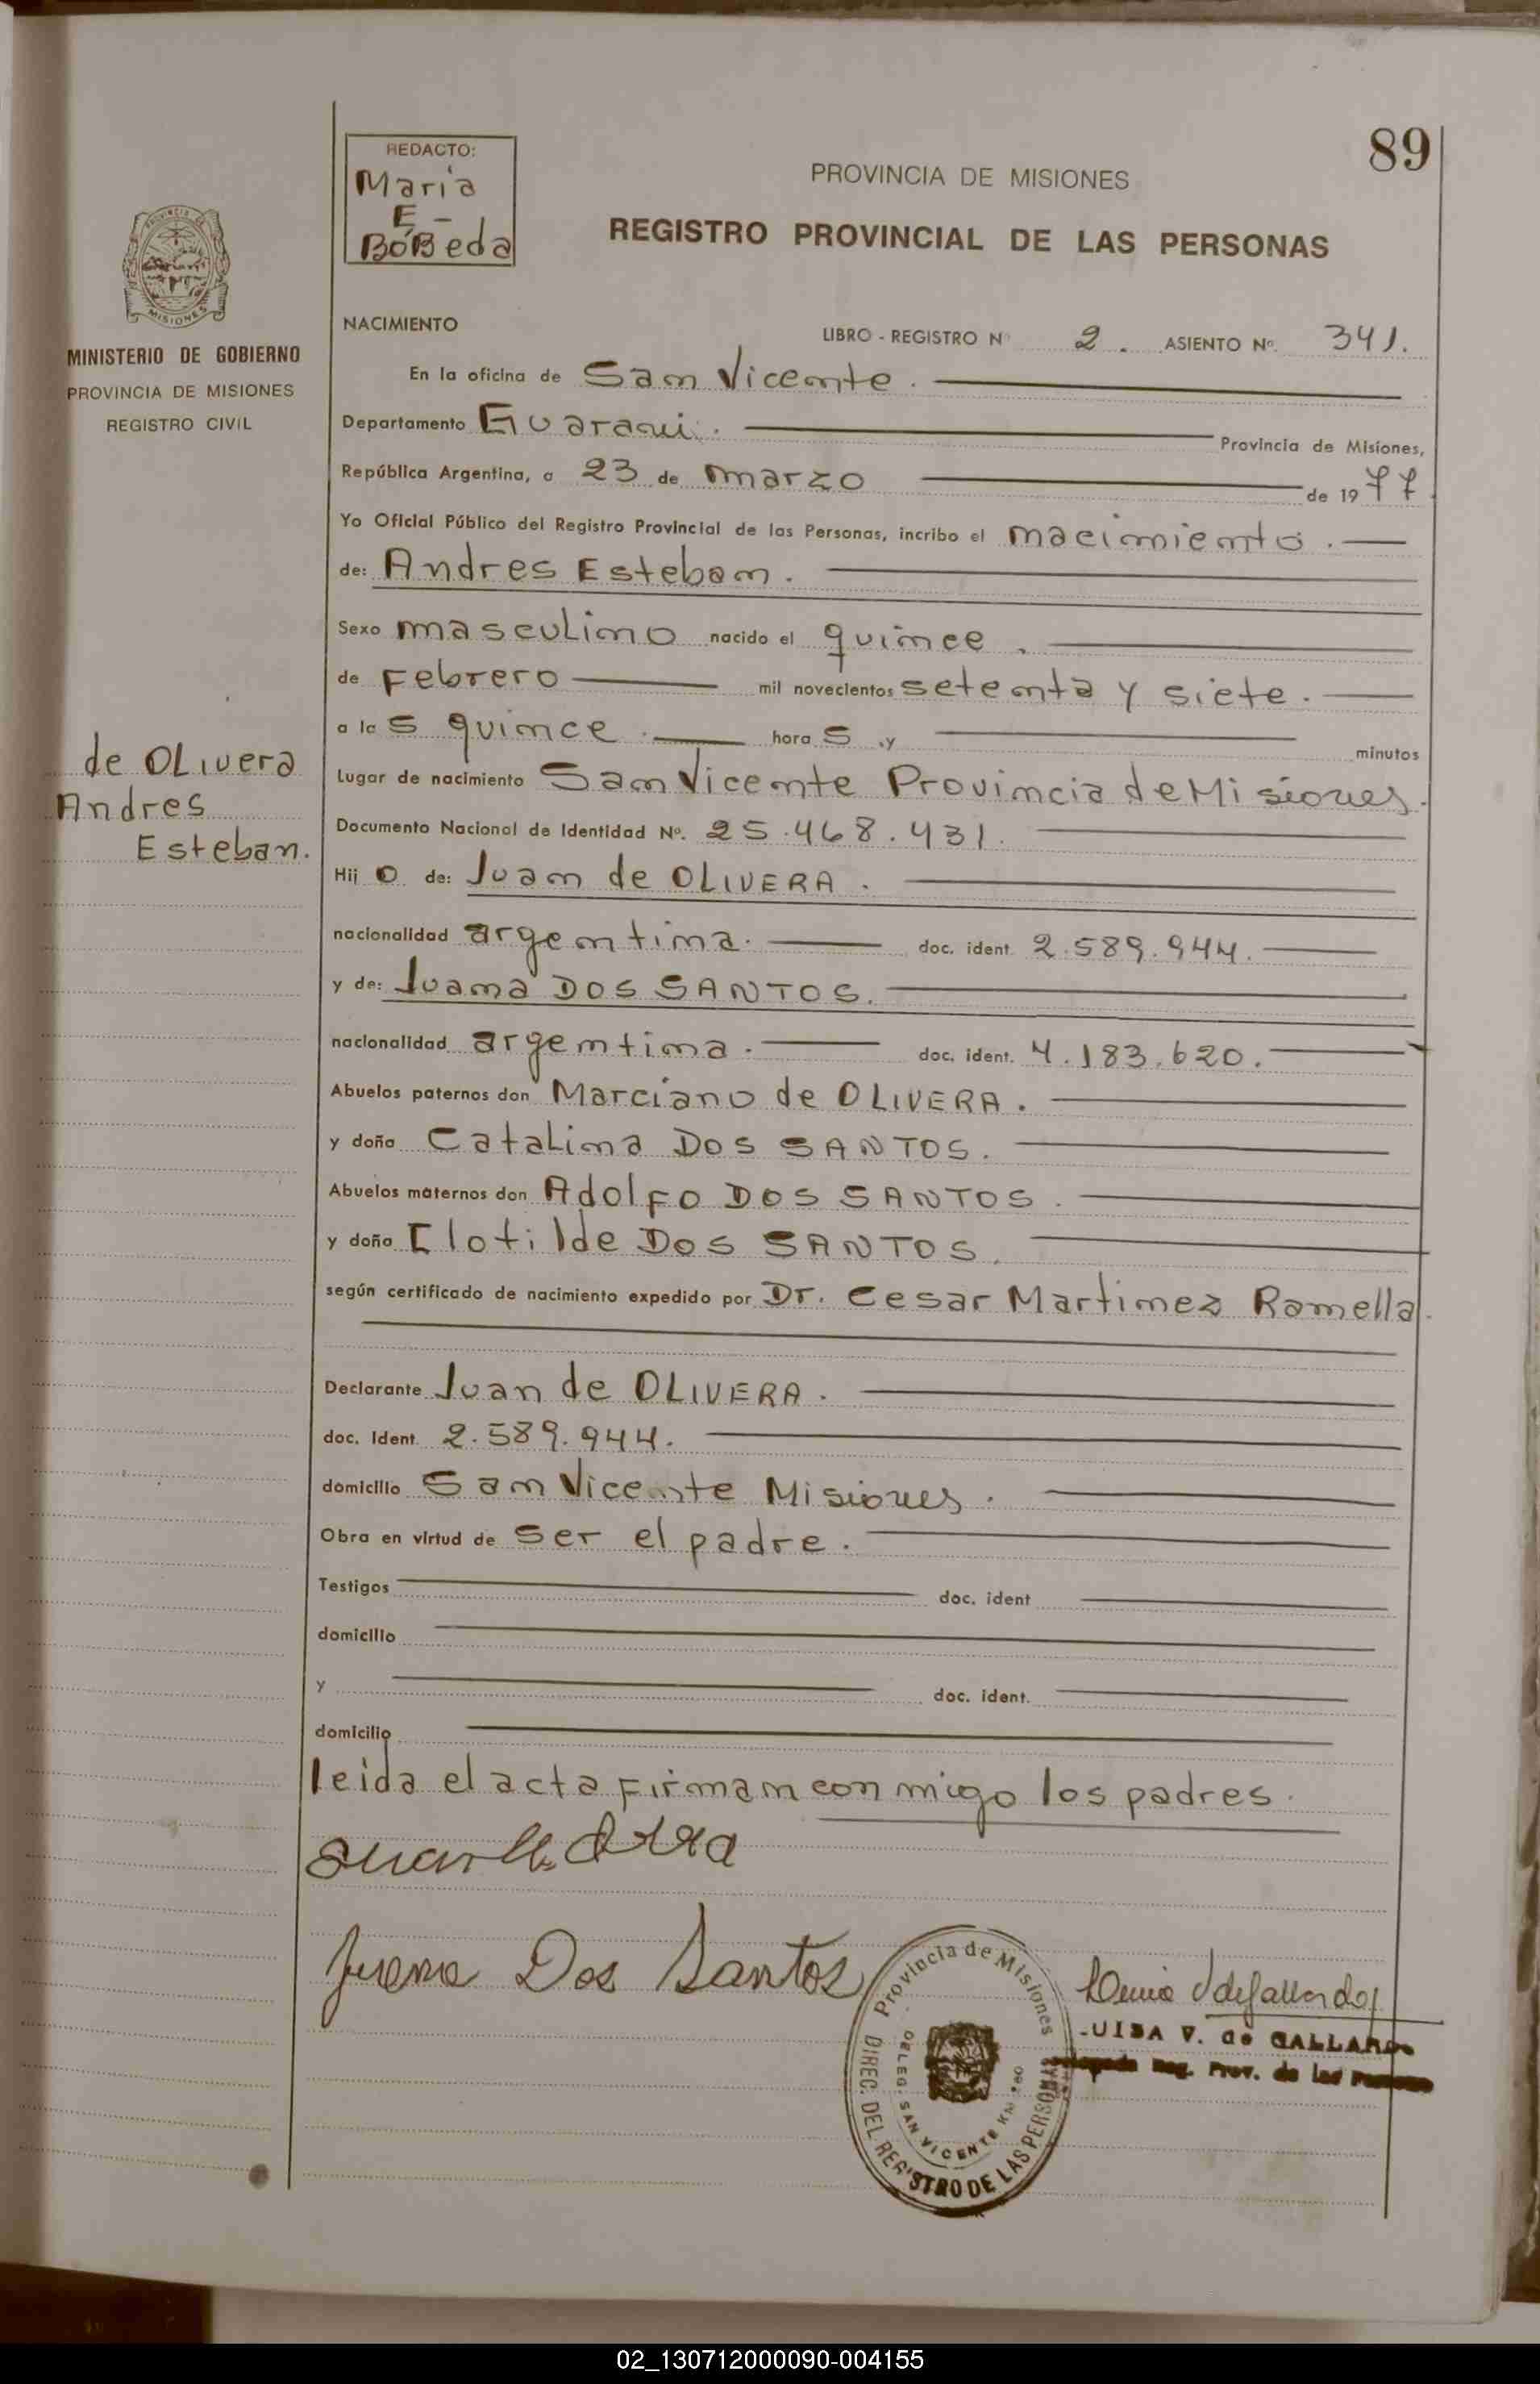 89
REDACTO:
Maria
E -
BóBeda
PROVINCIA DE MISIONES
REGISTRO PROVINCIAL DE LAS PERSONAS
MISIONES
MINISTERIO DE GOBIERNO
PROVINCIA DE MISIONES
REGISTRO CIVIL
NACIMIENTO LIBRO - REGISTRO Nº 2. ASIENTO Nº 341.
En la oficina de San Vicente.
Departamento Guarani. Provincia de Misiones,
República Argentina, a 23 de marzo de 1977
Yo Oficial Público del Registro Provincial de las Personas, incribo el nacimiento.
de: Andres Esteban.
Sexo masculino nacido el quince.
de Febrero mil novecientos setenta y siete.
a las quince. horas y minutos
Lugar de nacimiento San Vicente Provincia de Misiones.
Documento Nacional de Identidad Nº. 25.468.431.
Hijo de: Juan de OLIVERA.
nacionalidad argentina. doc. ident. 2.589.944.
y de: Juana DOS SANTOS.
nacionalidad argentina. doc. ident. 4.183.620.
Abuelos paternos don Marciano de OLIVERA.
y doña Catalina DOS SANTOS.
Abuelos maternos don Adolfo DOS SANTOS.
y doña Clotilde DOS SANTOS.
según certificado de nacimiento expedido por Dr. Cesar Martinez Ramella.
Declarante Juan de OLIVERA.
doc. Ident. 2.589.944.
domicilio San Vicente Misiones.
Obra en virtud de ser el padre.
Testigos doc. ident
domicilio
y doc. ident.
domicilio
leida el acta firman con migo los padres.
de OLivera
Andres
Esteban.
Juana Dos Santos
Provincia de Misiones
DIREC. DEL REGISTRO DE LAS PERSONAS
DELEG. SAN VICENTE KM.
LUISA V. de GALLARDO
Reg. Prov. de las Personas
02_130712000090-004155